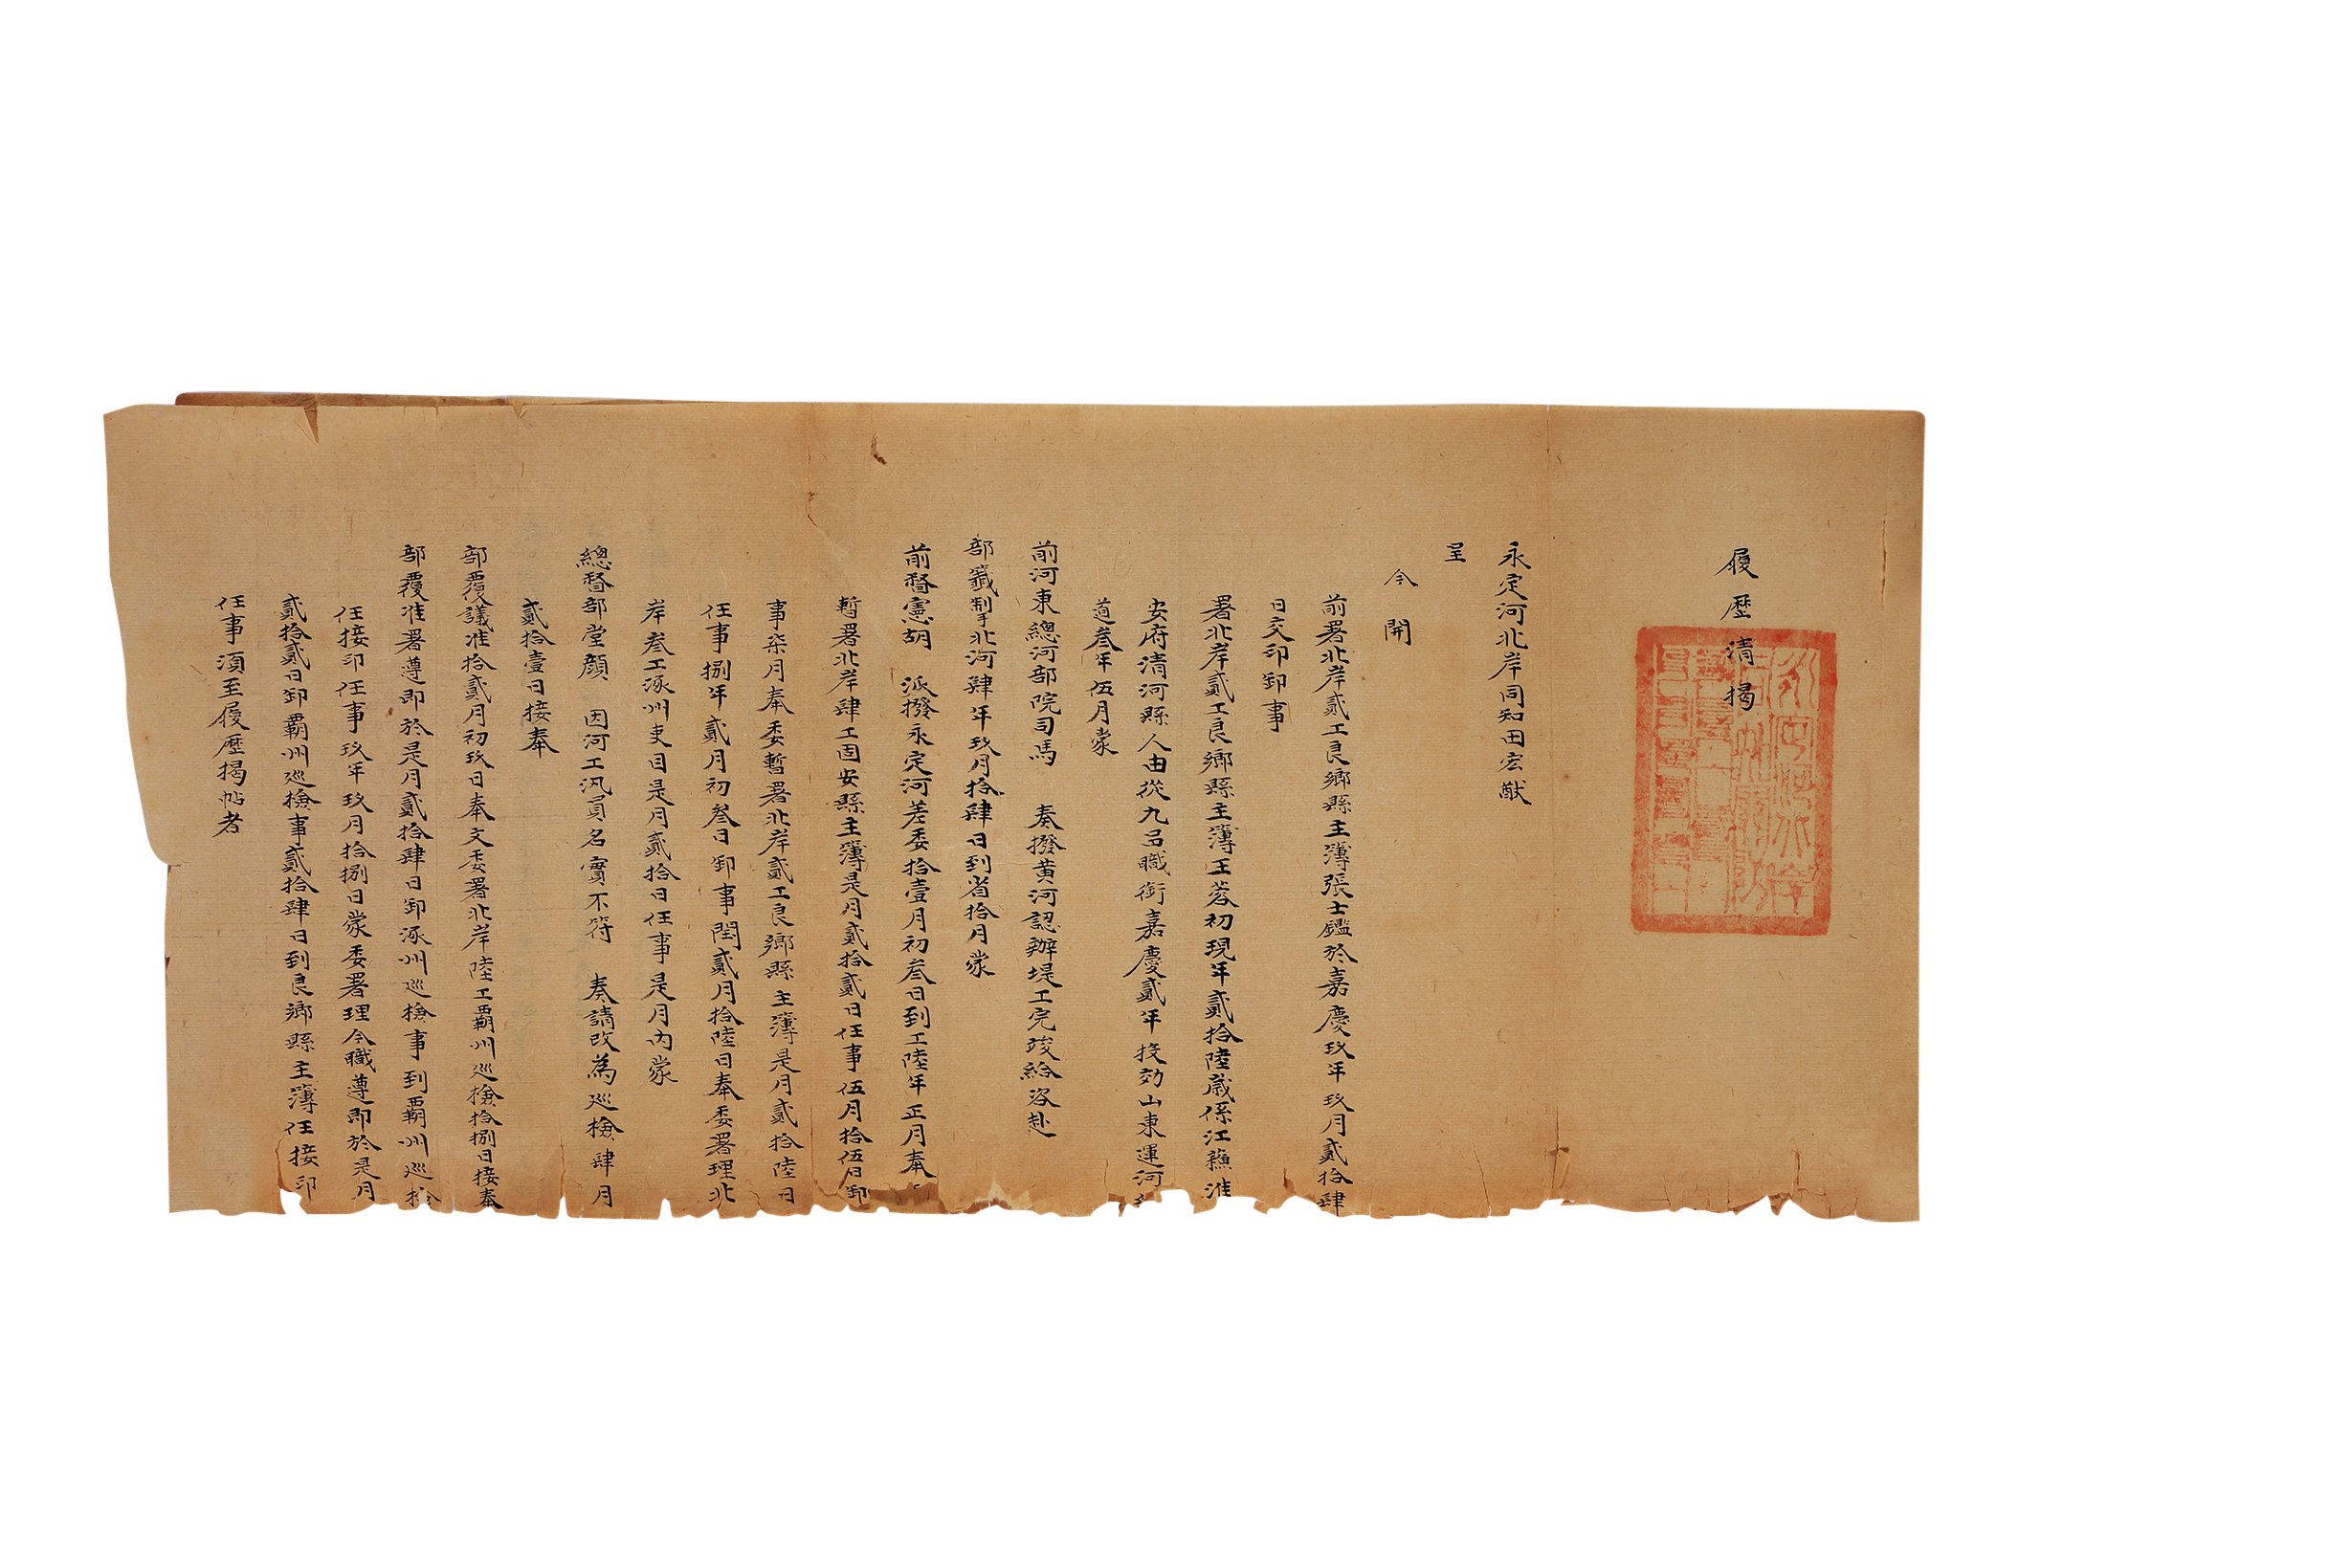 履歷清揭
永定河北岸同知田宏猷
呈
今開
前署北岸貳工良鄉縣主簿張士鑑於嘉慶玖年玖月貳拾肆
日交印卸事
署北岸貳工良鄉縣主簿王蓉初現年貳拾陸歲係江蘇淮
安府清河縣人由從九品職銜嘉慶貳年投効山東運河
道叁年伍月蒙
前河東總河部院司馬 奏撥黃河認辦堤工完竣給咨赴
部籤制北河肆年玖月拾肆日到省拾月蒙
前督憲胡 派撥永定河差委拾壹月初叁日到工陸年正月奉
暫署北岸肆工固安縣主簿是月貳拾貳日任事伍月拾伍日卸
事柒月奉委暫署北岸貳工良鄉縣主簿是月貳拾陸日
任事捌年貳月初叁日卸事閏貳月拾陸日奉委署理北
岸叁工涿州吏目是月貳拾日任事是月內蒙
總督部堂顏 因河工汛員名實不符 奏請改為巡檢肆月
貳拾壹日接奉
部覆議准拾貳月初玖日奉文委署北岸陸工霸州巡檢拾捌日接奉
部覆准署遵即於是月貳拾肆日卸涿州巡檢事到霸州巡檢
任接印任事玖年玖月拾捌日蒙委署理今職遵即於是月
貳拾貳日卸霸州巡檢事貳拾肆日到良鄉縣主簿任接印
任事須至履歷揭帖者